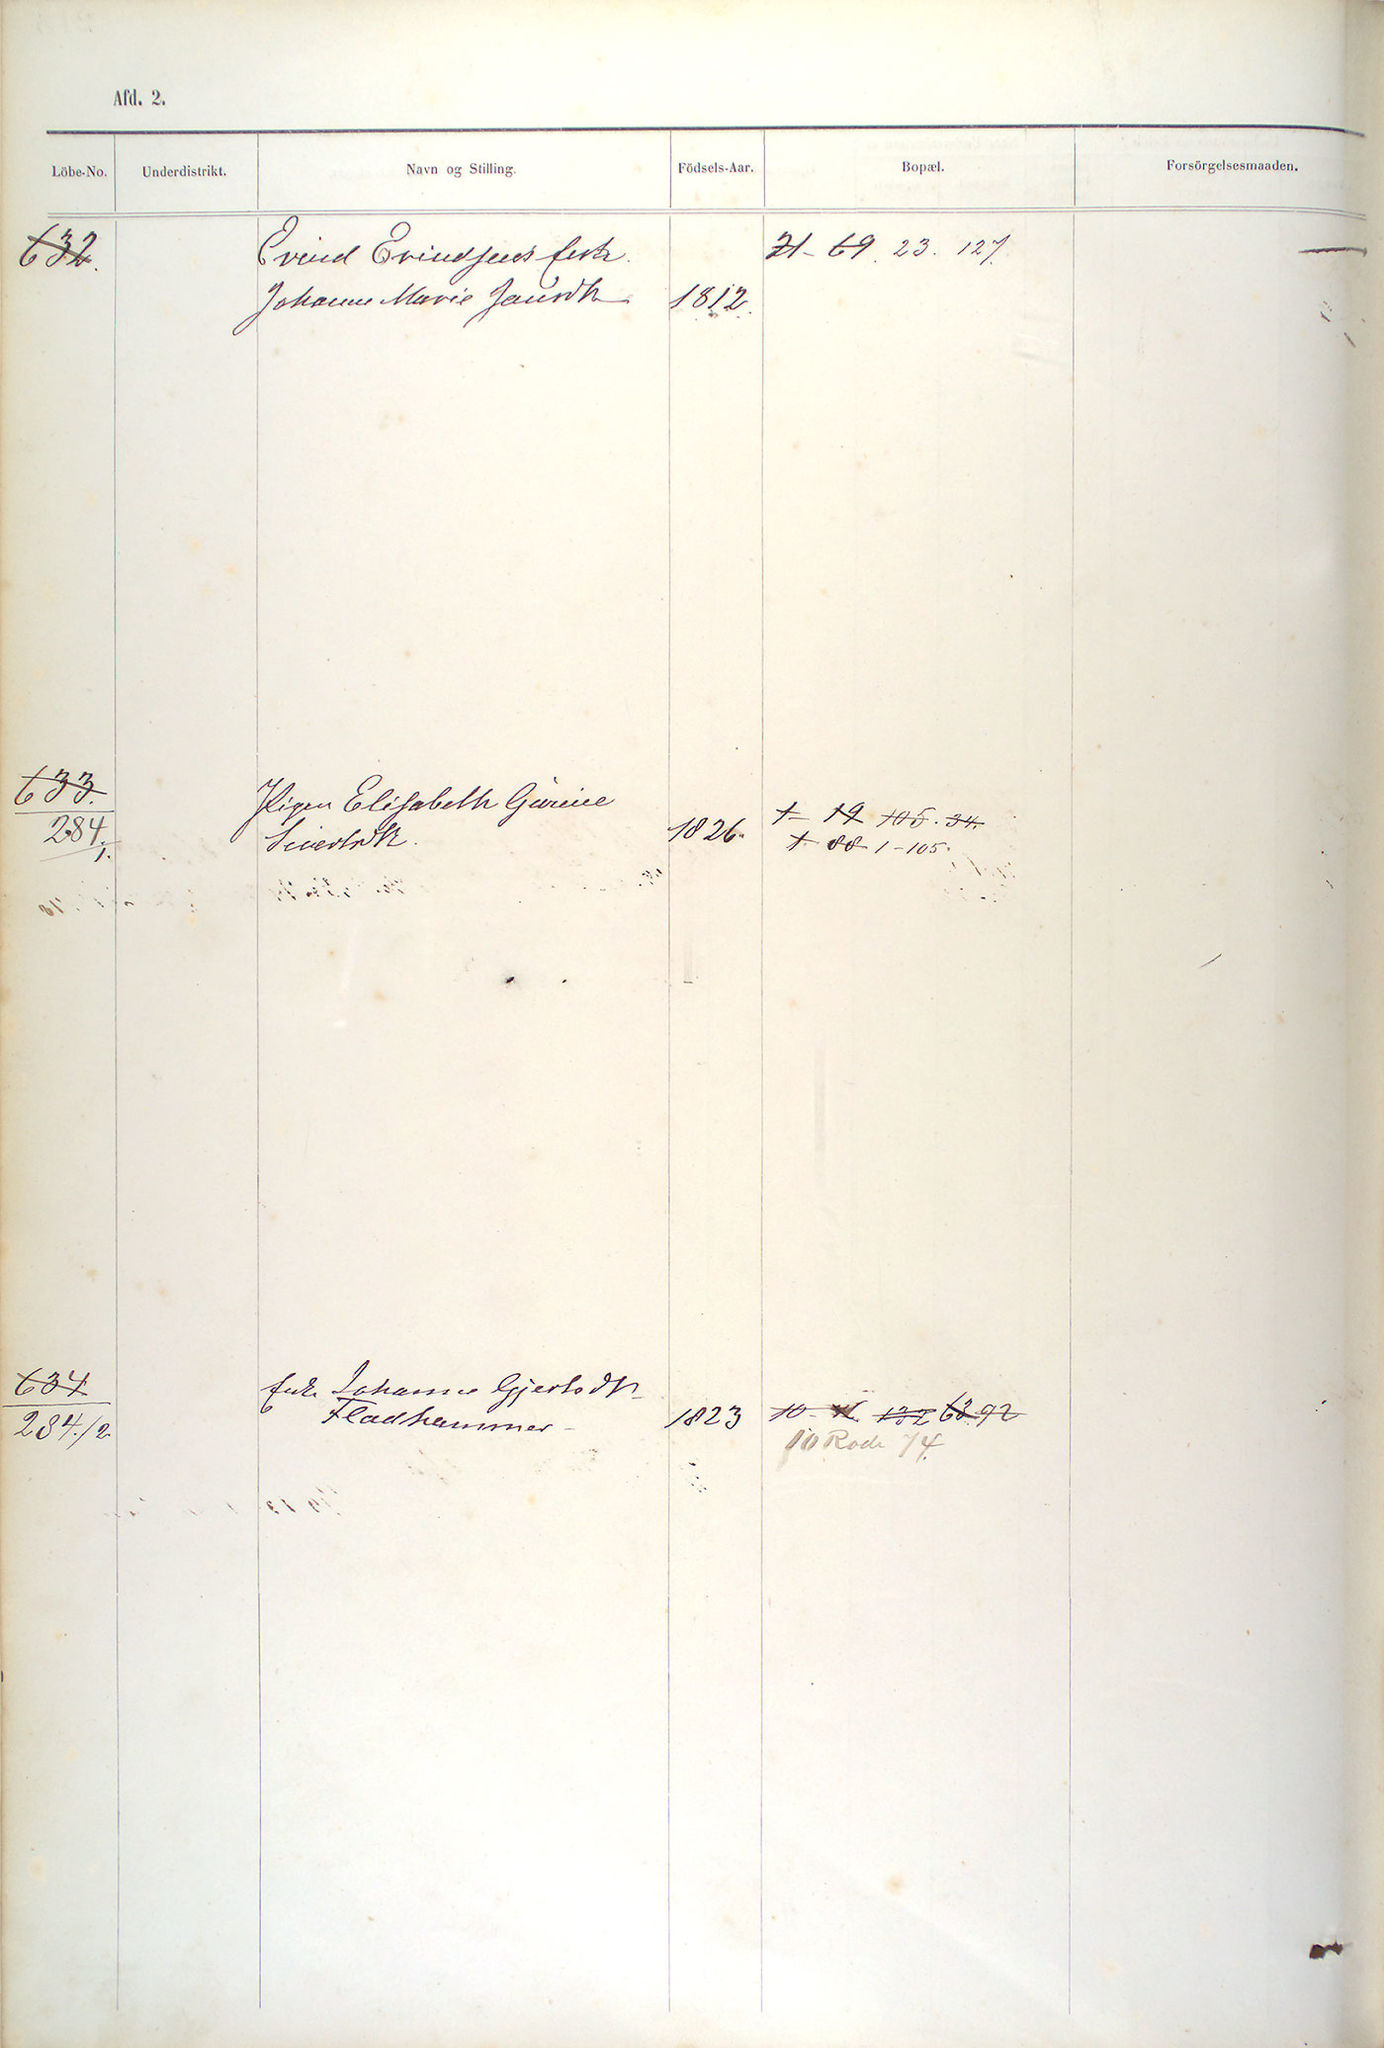 Afd. 2.
Löbe-No. Underdistrikt. Navn og Stilling. Födsels-Aar. Bopæl. Forsörgelsesmaaden.
632. Evind Evindsens Enke. 21 - 69. 23. 127.
Johanne Marie 1812.
633. Pigen Elisabeth Gurine 1 - 19 105. 34.
284./1. Sivertsdtr. 1826. 1 88 1-105.
634 Enke Johanne Gjertsdtr
284./2 Fladhammer 1823 10 - 132 63. 92
10 Rode 74.